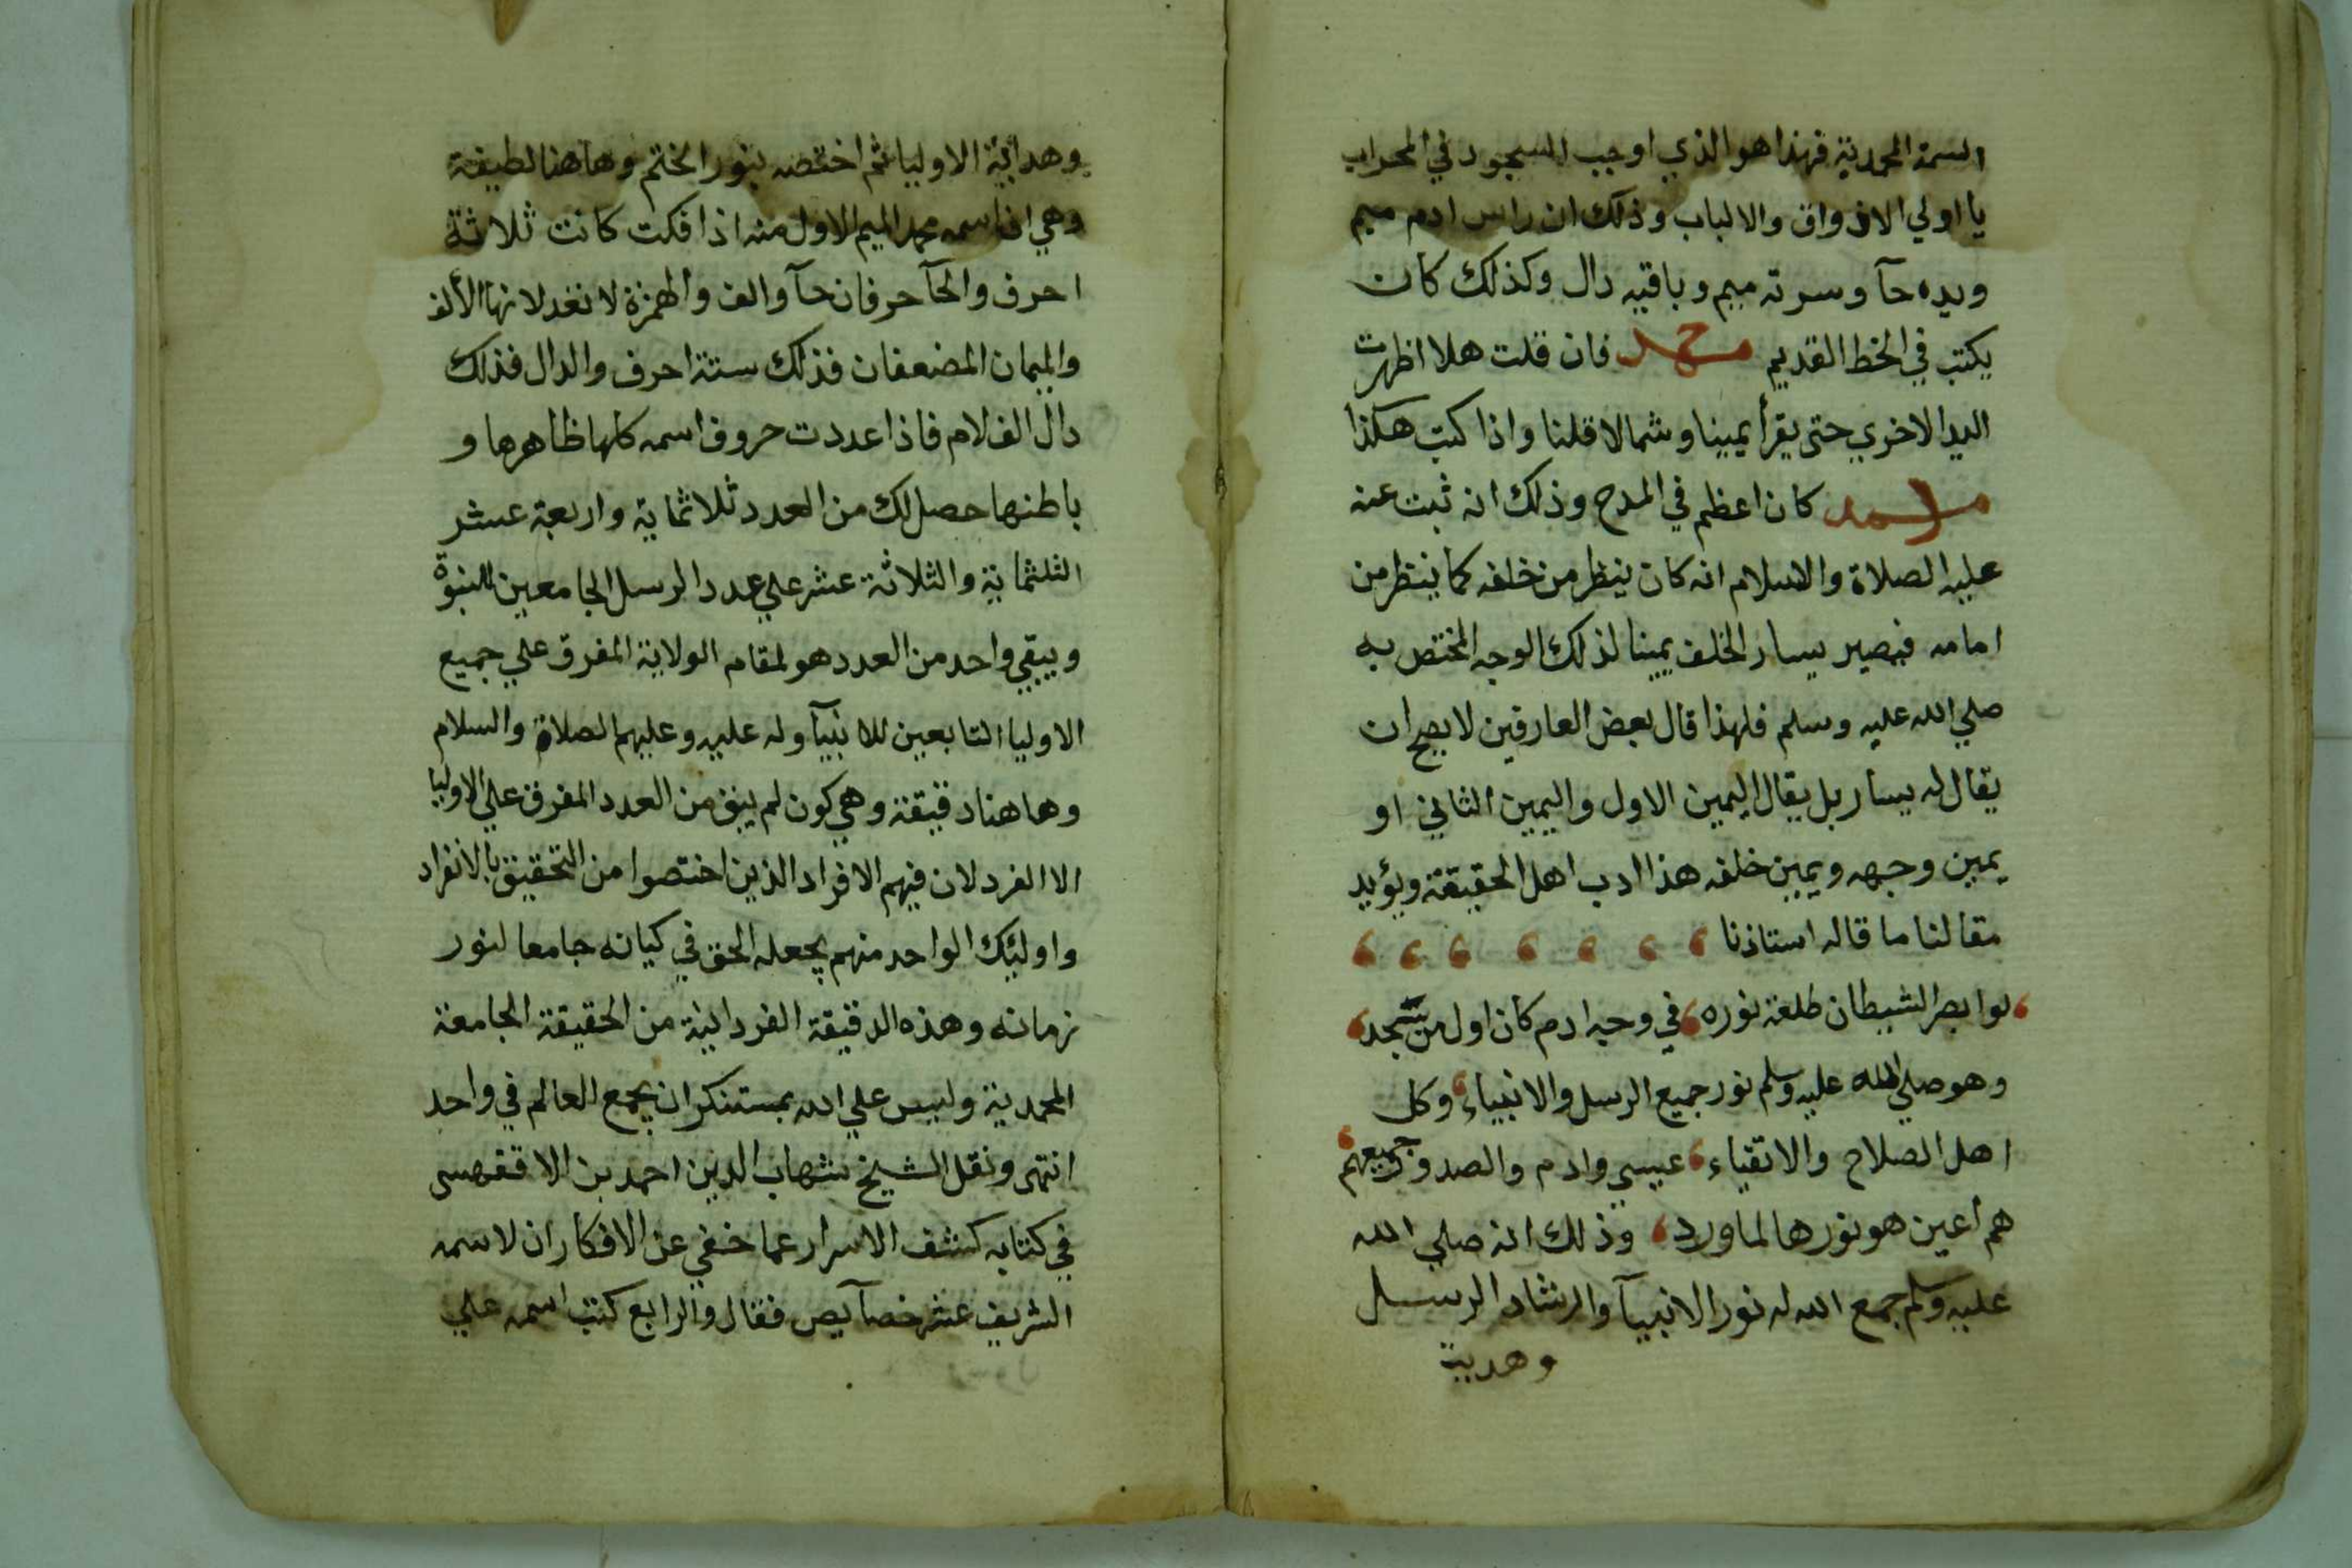 السمة المحمدية فهذا هو الذي اوجب السجود في المحراب
يا اولي الاذواق والالباب وذلك ان راس ادم ميم
ويده حآ وسرته ميم وباقيه دال وكذلك كان
يكتب في الخط القديم محمد فان قلت هلا اظهرت
اليد الاخري حتى يقرأ يمينا وشمالا قلنا واذا كتب هكذا
كان اعظم في المدح وذلك انه ثبت عنه
عليه الصلاة والسلام انه كان ينظر من خلفه كما ينظر من
امامه فيصير يسار الخلف يمينا لذلك الوجه المختص به
صلي الله عليه وسلم فلهذا قال بعض العارفين لا يصح ان
يقال له يسار بل يقال اليمين الاول واليمين الثاني او
يمين وجهه ويمين خلفه هذا ادب اهل الحقيقة ويؤيد
مقالنا ما قاله استاذنا
لو ابصر الشيطان طلعة نوره في وجه ادم كان اول من سجد
وهو صلي الله عليه وسلم نور جميع الرسل والانبياء وكل
اهل الصلاح والاتقياء عيسي وادم والصدور جميعهم
هم أعين هو نورها لما ورد وذلك انه صلي الله
عليه وسلم جمع الله له نور الانبيآ والرشاد الرسل
وهدية
وهداية الاوليا ثم اختصه بنور الختم وهاهنا لطيفة
وهي ان اسمه محمد الميم الاول منه اذا فكت كانت ثلاثة
احرف والحآ حرفان حآ والف والهمزة لا تعد لانها الألف
والميمان المضعفان فذلك ستة احرف والدال فذلك
دال الف لام فاذا عددت حروف اسمه كلها ظاهرها و
باطنها حصل لك من العدد ثلاثماية واربعة عشر
الثلثماية والثلاثة عشر علي عدد الرسل الجامعين للنبوة
ويبقي واحد من العدد هو لمقام الولاية المفرق علي جميع
الاوليا التابعين للانبيآ وله عليه وعليهم الصلاة والسلام
وهاهنا دقيقة وهي كون لم يبق من العدد المفرق علي الاوليا
الا الفرد لان فيهم الافراد الذين اختصوا من التحقيق بالانفراد
واوليك الواحد منهم يجعله الحق في كيانه جامعا لنور
زمانه وهذه الدقيقة الفردانية من الحقيقة الجامعة
المحمدية وليس علي الله بمستنكر ان يجمع العالم في واحد
انتهى ونقل الشيخ شهاب الدين احمد بن الاقفهسى
في كتابه كشف الاسرار عما خفي عن الافكار ان لاسمه
الشريف عشر خصآيص فقال والرابع كتب اسمه علي